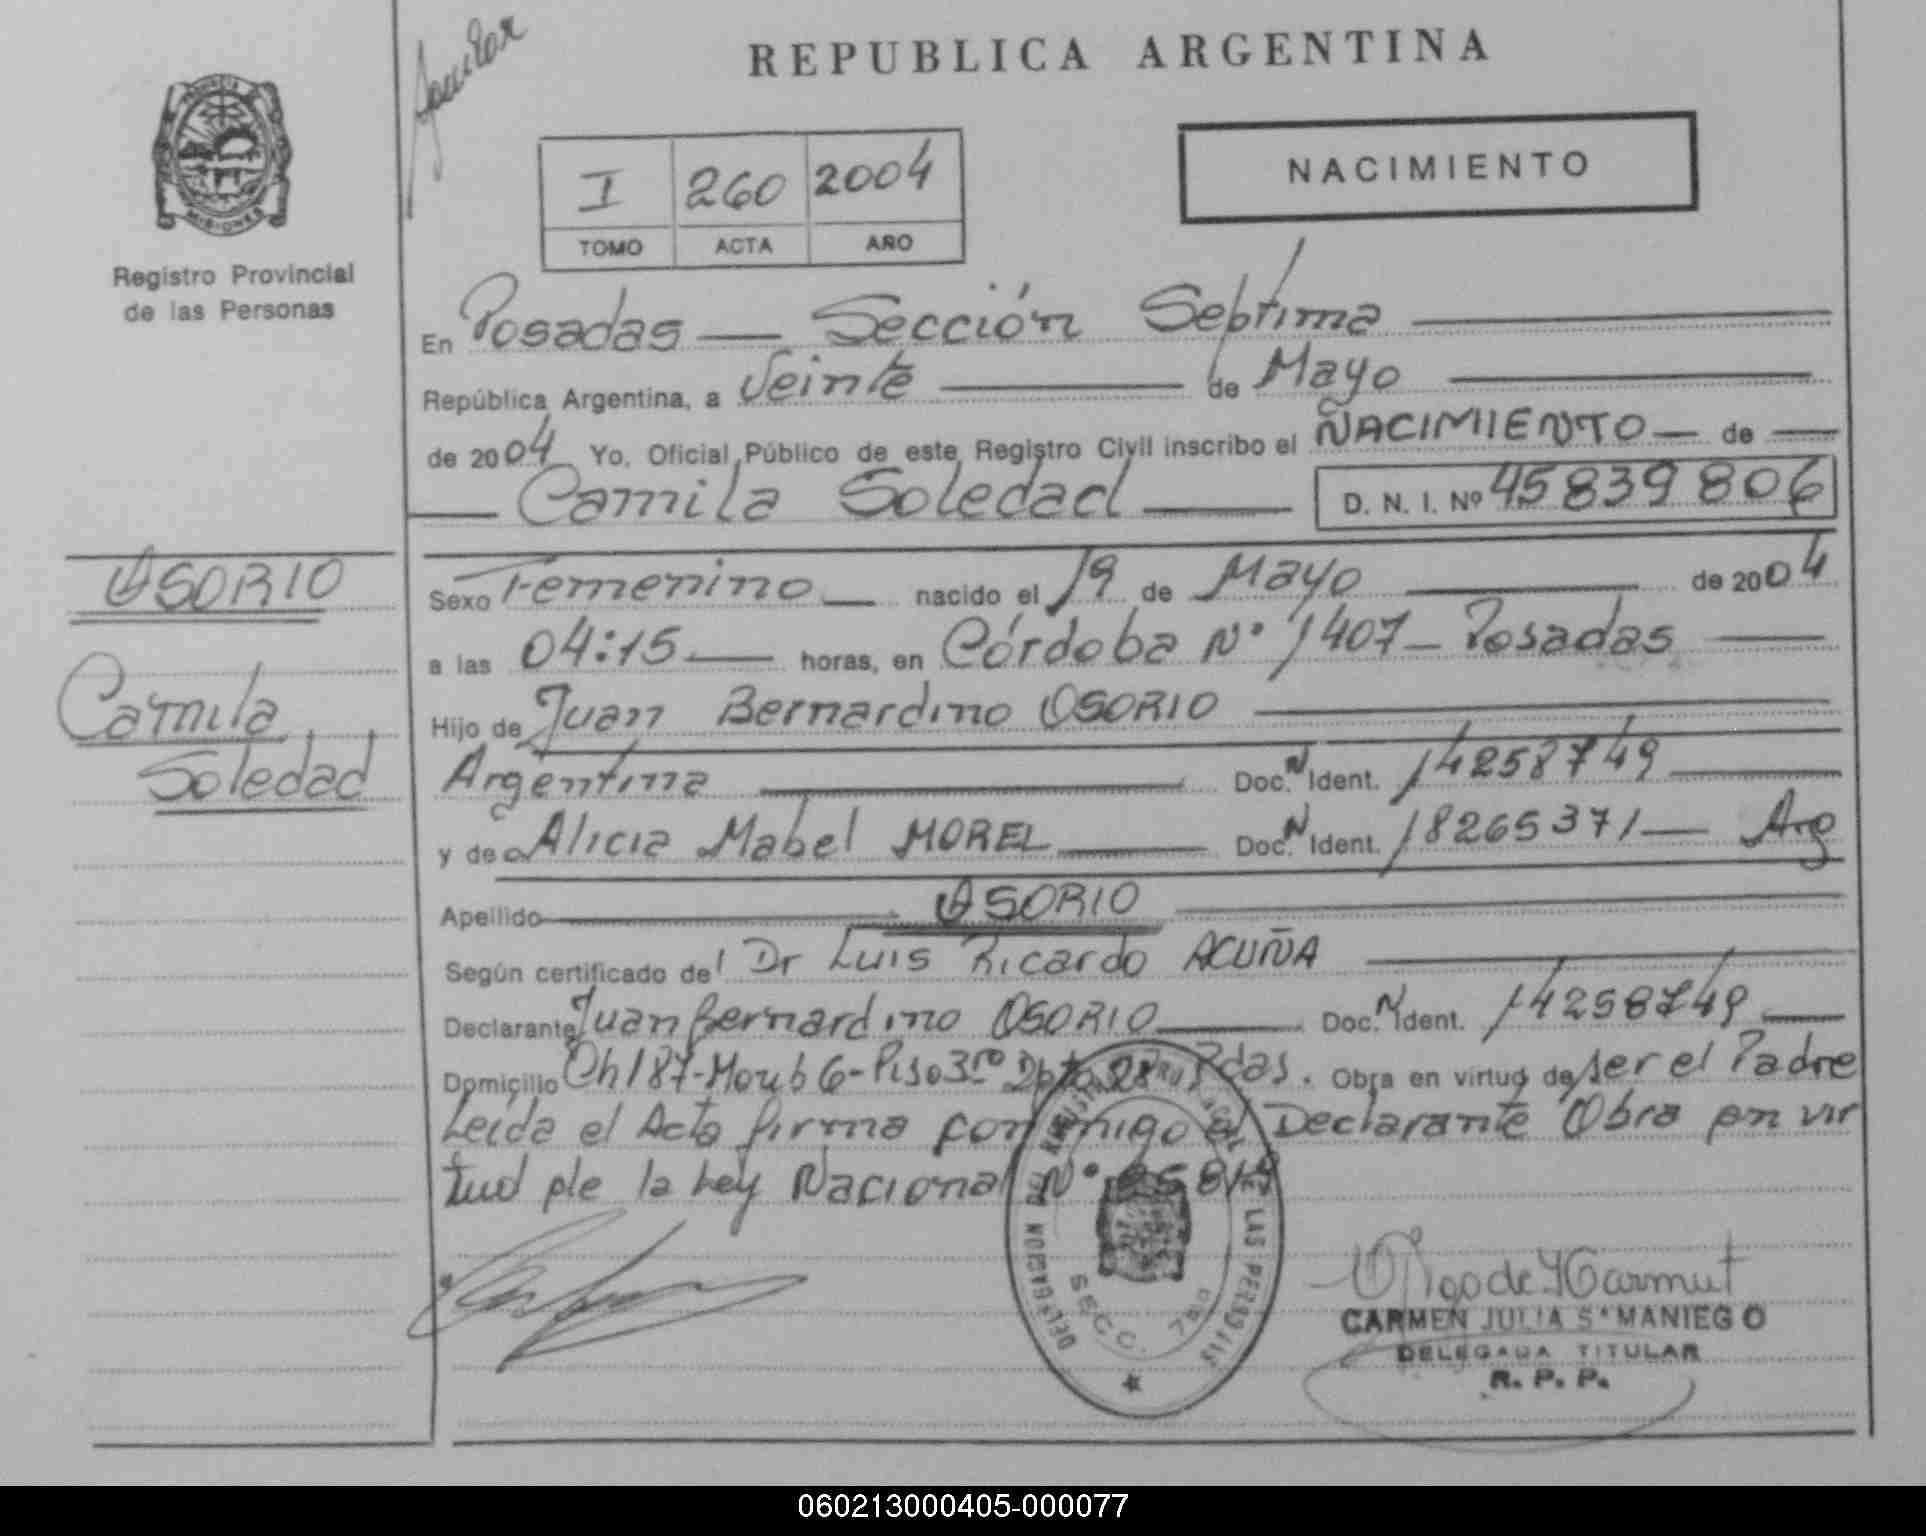 Aguilar
REPUBLICA ARGENTINA
PROVINCIA DE
MISIONES
Registro Provincial
de las Personas
I 260 2004
TOMO ACTA AÑO
NACIMIENTO
En Posadas — Sección Septima
República Argentina, a Veinte de Mayo
de 2004 Yo, Oficial Público de este Registro Civil inscribo el NACIMIENTO — de —
Camila Soledad — D. N. I. Nº 45839806
OSORIO
Camila
Soledad
Sexo Femenino nacido el 19 de Mayo de 2004
a las 04:15 horas, en Córdoba Nº 1407 - Posadas
Hijo de Juan Bernardino OSORIO
Argentina Doc. N Ident. 14258749
y de Alicia Mabel MOREL Doc. N Ident. 18265371 — Arg
Apellido OSORIO
Según certificado del Dr Luis Ricardo ACUÑA
Declarante Juan Bernardino OSORIO Doc. N Ident. 14258749
Domicilio Ch 187- 6- Piso 3ro Dpto Pdas. Obra en virtud de ser el Padre
Leída el Acta firma conmigo el Declarante Obra en vir
tud de la Ley Nacional Nº 25819
DELEGACION DEL REGISTRO PROVINCIAL DE LAS PERSONAS
SECC. 7ma
CARMEN JULIA SAMANIEGO
DELEGADA TITULAR
R. P. P.
060213000405-000077